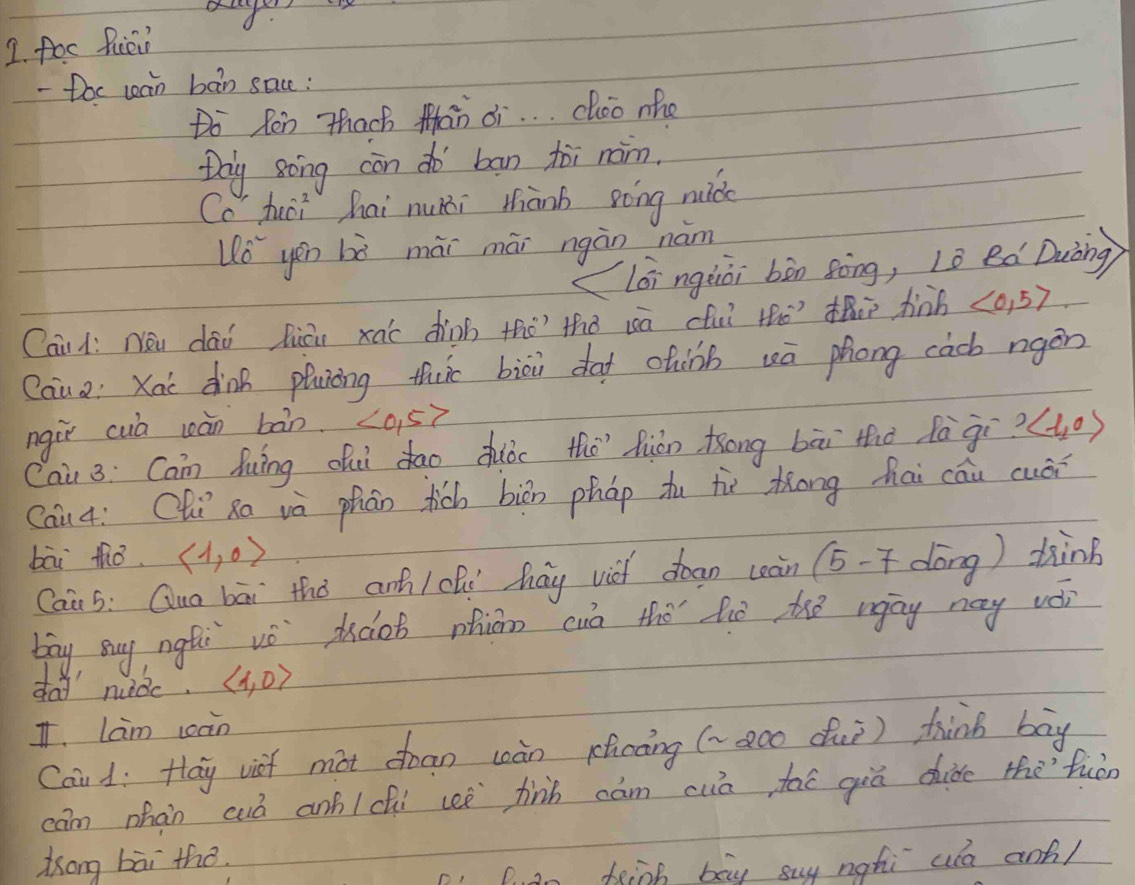 I. Đọc hiểu
- Đọc văn bản sau:
Đò lên Thạch Hãn ơi ... chèo nhẹ
Đáy sông còn đó bạn tôi nằm.
Có tuổi hai mươi thành sóng nước
Vỗ yên bờ mãi mãi ngàn năm
<Lời người bên sông, Lê Bá Dương>
Câu 1: Nêu dấu hiệu xác định thể thơ và chủ thể trữ tình <0,5>
Câu 2: Xác định phương thức biểu đạt chính và phong cách ngôn
ngữ của văn bản. <0,5>
Câu 3: Cảm hứng chủ đạo được thể hiện trong bài thơ là gì? <1,0>
Câu 4: Chỉ ra và phân tích biện pháp tu từ trong hai câu cuối
bài thơ. <1,0>
Câu 5: Qua bài thơ anh/chị hãy viết đoạn văn (5-7 dòng) trình
bày suy nghĩ về trách nhiệm của thế hệ trẻ ngày nay với
đất nước. <1,0>
II. Làm văn
Câu 1: Hãy viết một đoạn văn khoảng (~200 chữ) trình bày
cảm nhận của anh/chị về tình cảm của tác giả được thể hiện
trong bài thơ.
trình bày suy nghĩ của anh/